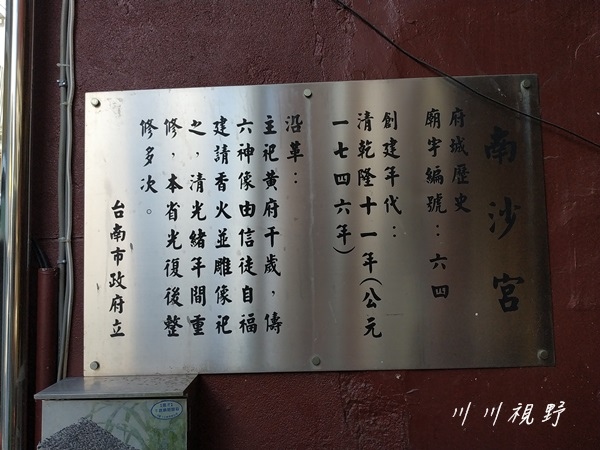 南沙宮
府城歷史
廟宇編號：六四
創建年代：
清乾隆十一年(公元
一七四六年)
沿革：
主祀黃府千歲，儔
六神像由信徒自福
建請香火並雕像祀
之，清光緒年間重
修，本省光復後整
修多次。
台南市政府立
川川視野